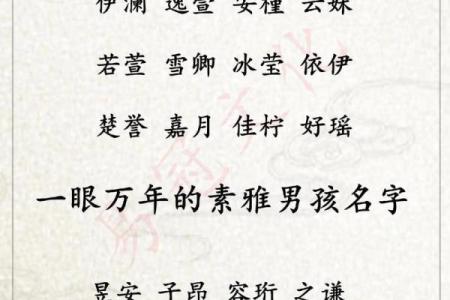 伊澜 逸萱 安槿 云姝
若萱 雪卿 冰莹 依伊
楚誉 嘉月 佳柠 好瑶
一眼万年的素雅男孩名字
昱安 子昂 容珩 之谦